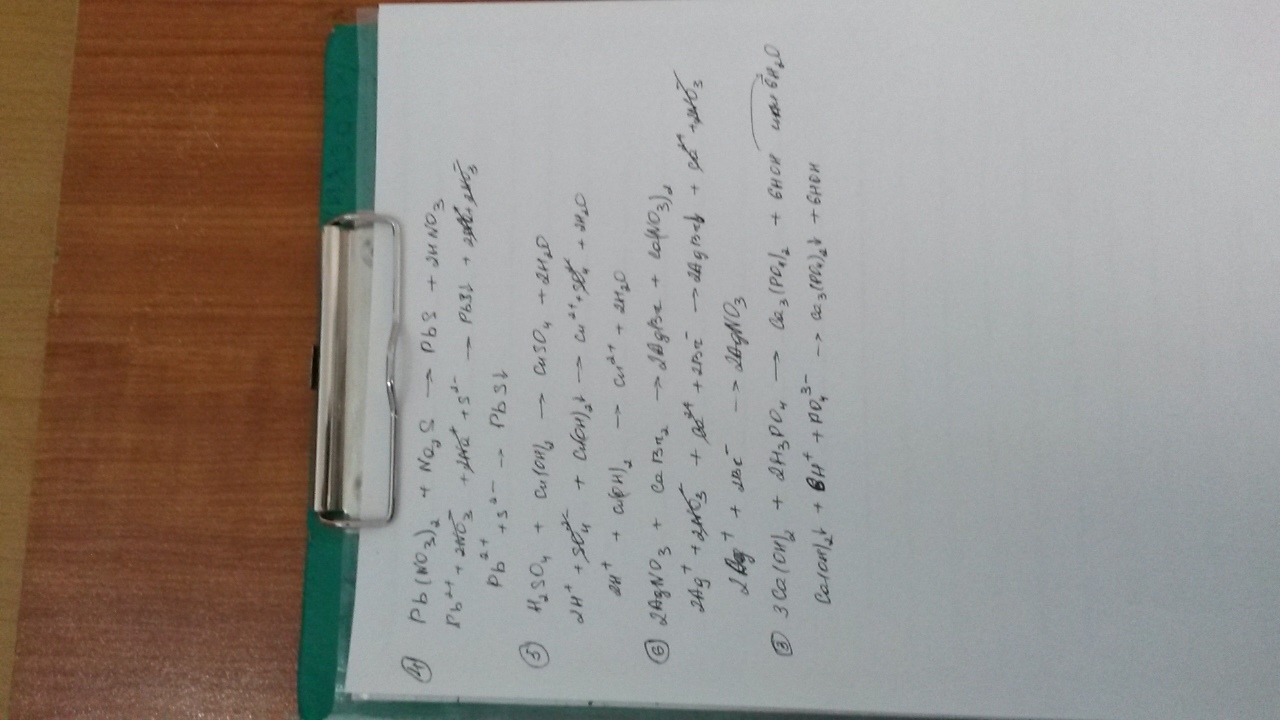 ④ Pb(NO₃)₂ + Na₂S → PbS + 2HNO₃
Pb²⁺ + 2NO₃⁻ + 2Na⁺ + S²⁻ → PbS↓ + 2Na⁺ + 2NO₃⁻
Pb²⁺ + S²⁻ → PbS↓
⑤ H₂SO₄ + Cu(OH)₂ → CuSO₄ + 2H₂O
2H⁺ + SO₄²⁻ + Cu(OH)₂↓ → Cu²⁺ + SO₄²⁻ + 2H₂O
2H⁺ + Cu(OH)₂ → Cu²⁺ + 2H₂O
⑥ 2AgNO₃ + CaBr₂ → 2AgBr + Ca(NO₃)₂
2Ag⁺ + 2NO₃⁻ + Ca²⁺ + 2Br⁻ → 2AgBr↓ + Ca²⁺ + 2NO₃⁻
2Ag⁺ + 2Br⁻ → 2AgNO₃
⑧ 3Ca(OH)₂ + 2H₃PO₄ → Ca₃(PO₄)₂ + 6HOH или 6H₂O
Ca(OH)₂↓ + 6H⁺ + PO₄³⁻ → Ca₃(PO₄)₂↓ + 6HOH